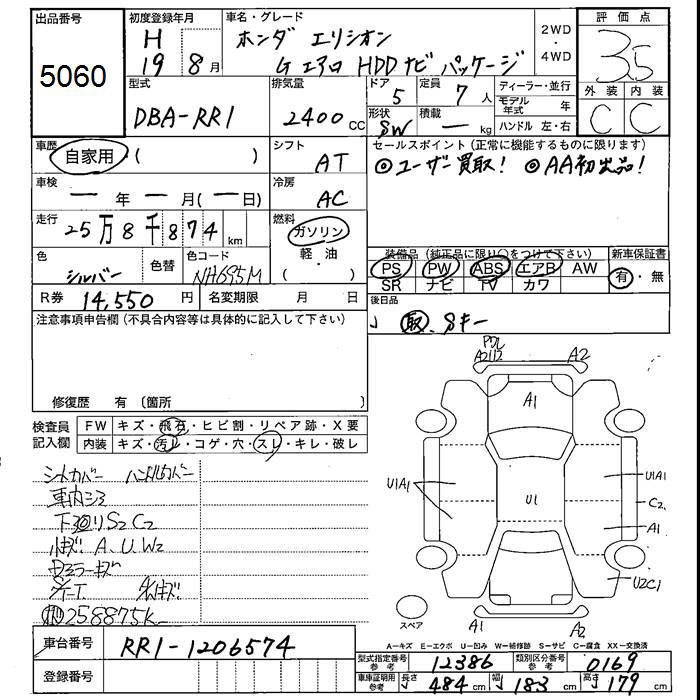 出品番号 初度登録年月 車名・グレード 評価点
5060 H 19 8月 ホンダ エリシオン 2WD・4WD 3.5
G エアロ HDDナビ パッケージ
外装 内装
C C
型式 排気量 ドア 定員 ディーラー・並行
DBA-RR1 2400cc 5 7人 モデル年式 年
形状 積載 ハンドル 左・右
SW ー kg
車歴 自家用 ( ) シフト AT セールスポイント(正常に機能するものに限ります)
◎ユーザー買取! ◎AA初出品!
車検 ー年ー月(ー日) 冷房 AC
走行 25万8千874km 燃料 ガソリン・軽油 ( )
色 シルバー 色替 色コード NH695M
装備品(純正品に限り○をつけて下さい) 新車保証書
PS PW ABS エアB AW 有・無
SR ナビ TV カワ
R券 14,550円 名変期限 月 日 後日品
取.Sキー
注意事項申告欄(不具合内容等は具体的に記入して下さい)
修復歴 有(箇所 )
検査員記入欄 FW キズ・飛石・ヒビ割・リペア跡・X要
内装 キズ・汚れ・コゲ・穴・スレ・キレ・破レ
シートカバー ハンドルカバー
車内シミ
下回りS2C2
小キズ A.U.W2
258875k
A2 A1
U1A1 U1 U1A1
C2
A1
U2C1
スペア A1 A2
A-キズ E-エクボ U-凹み W-補修跡 S-サビ C-腐食 XX-交換済
車台番号 RR1-1206574
型式指定番号参考 12386 類別区分番号参考 0169
登録番号
車庫証明用参考 長さ 484cm 幅 183cm 高さ 179cm